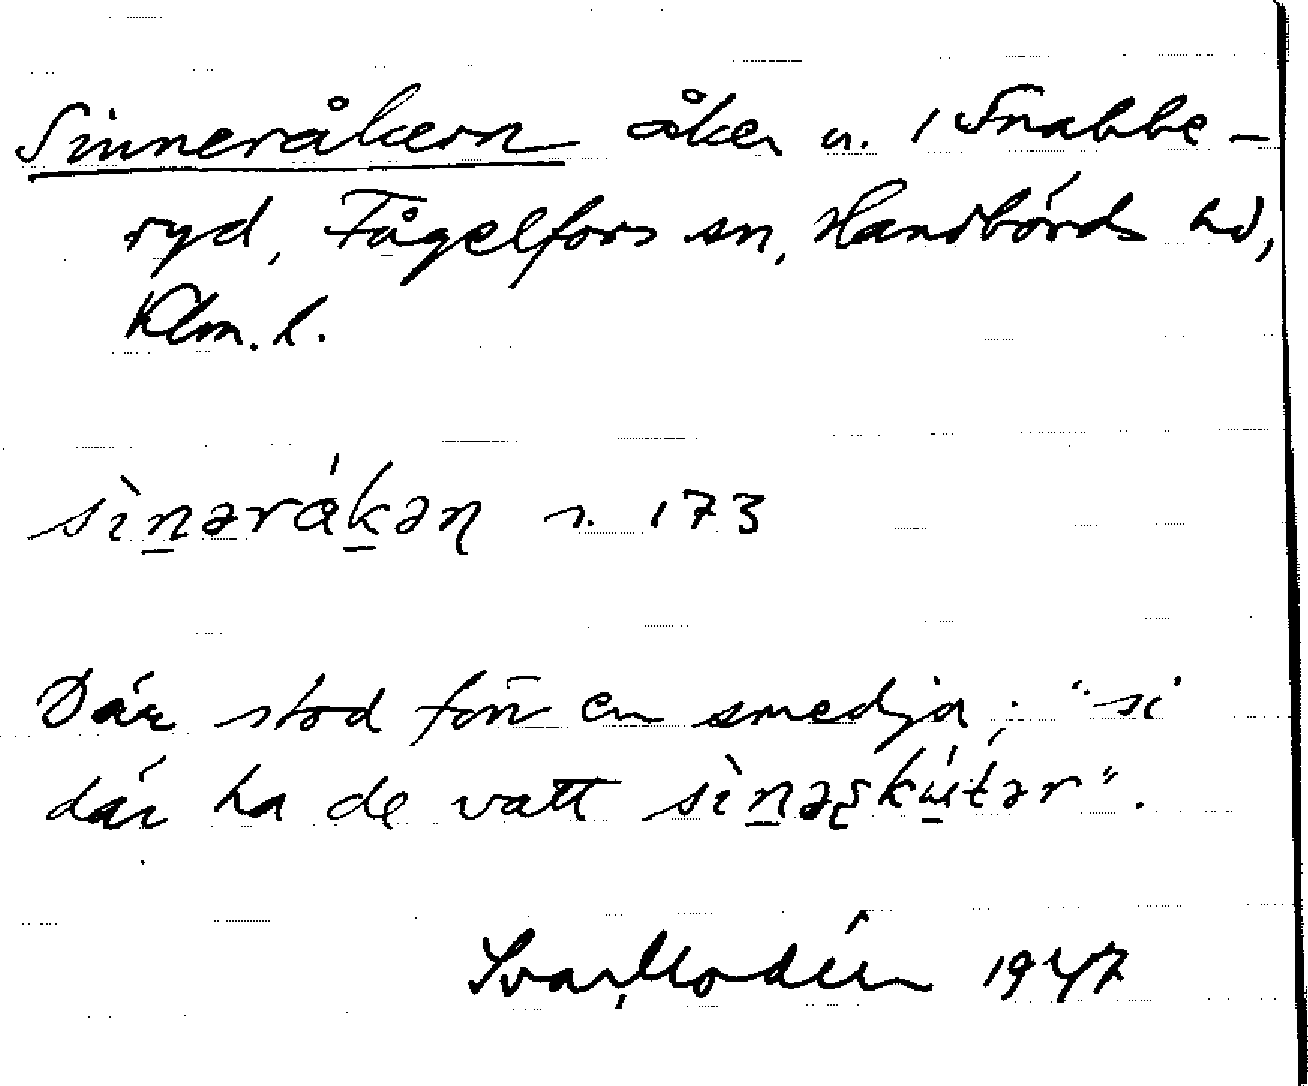 Sinneråkern åker u. 1 Snabbe-
ryd, Fågelfors sn, Handbörds hd,
Klm. l.
sìnəråkən r. 173
Där stod förr en smedja; "si
där ha de vatt sìnəʂkútər".
Ivar Modéer 1947